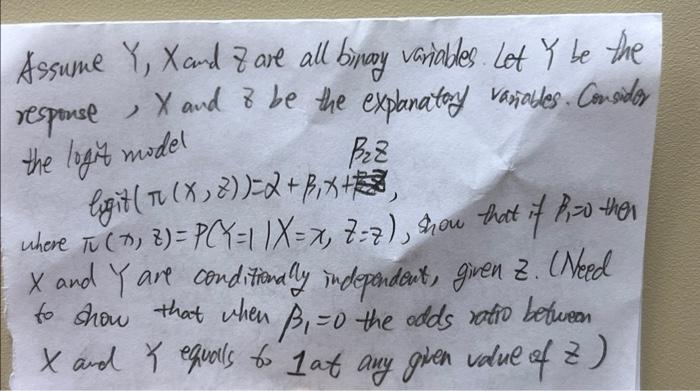 Assume Y, X and Z are all binary variables. Let Y be the
response, X and Z be the explanatory variables. Consider
the logit model
β₂z
logit(π(x, z))=α+β₁x+ ,
where π(x, z)=P(Y=1|X=x, Z=z), show that if β₁=0 then
X and Y are conditionally independent, given Z. (Need
to show that when β₁=0 the odds ratio between
X and Y equals to 1 at any given value of Z)